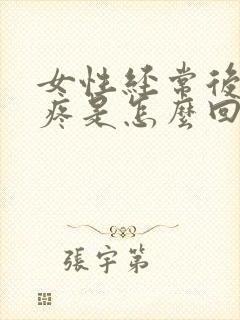 女性経常後
疼是怎麼回
張宇第